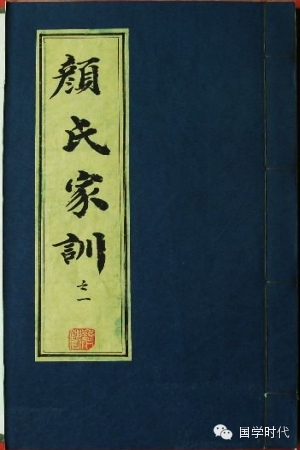 顔氏家訓
之一
国学时代